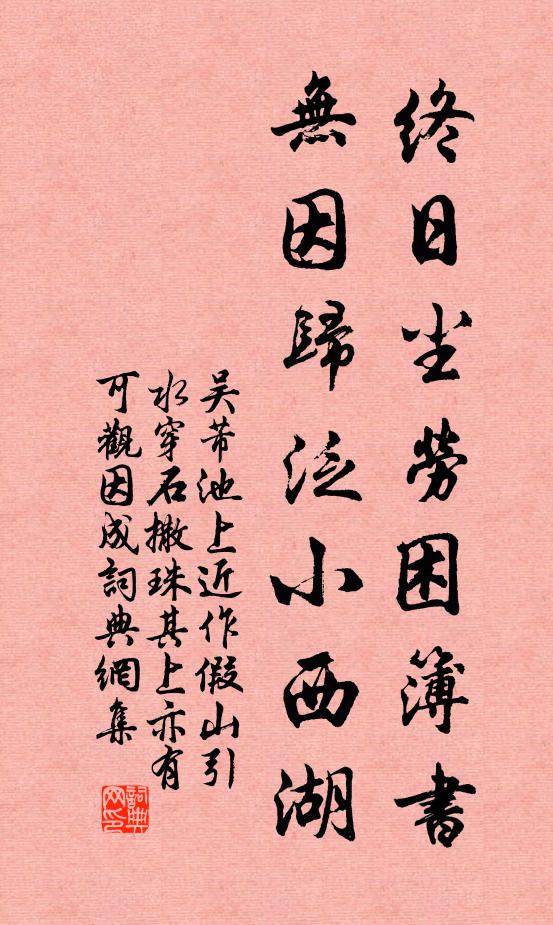 終日尘勞困簿書
無因歸泛小西湖
吴芾池上近作假山引
水穿石撒珠其上亦有
可觀因成詞典網集
詞典网印